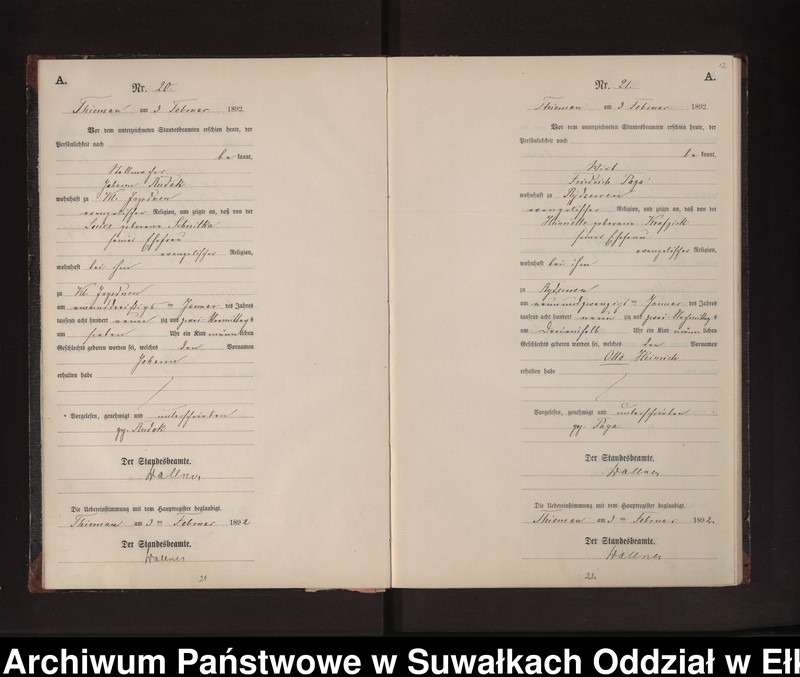 A.
Nr. 20.
Thieman am 3 Februar 1892.
Vor dem unterzeichneten Standesbeamten erschien heute, der
Persönlichkeit nach
be kannt,
Stellmacher
Johann Rudek
wohnhaft zu Kl.
evangelischer Religion, und zeigte an, daß von der
Louise geborene
seiner Ehefrau
evangelischer Religion,
wohnhaft bei ihm
zu Kl.
am einunddreißigs ten Januar des Jahres
tausend acht hundert neun zig und zwei Vormittag s
um sieben Uhr ein Kind männ lichen
Geschlechts geboren worden sei, welches den Vornamen
Johann
erhalten habe
Vorgelesen, genehmigt und unterschrieben
gz. Rudek
Der Standesbeamte.
Wallner
Die Uebereinstimmung mit dem Hauptregister beglaubigt.
Thieman am 3 ten Februar 1892
Der Standesbeamte.
Wallner
21
12
A.
Nr. 21.
Thieman am 3 Februar 1892.
Vor dem unterzeichneten Standesbeamten erschien heute, der
Persönlichkeit nach
be kannt,
Wirt
Friedrich Paga
wohnhaft zu Rydzewen
evangelischer Religion, und zeigte an, daß von der
Henriette geborene
seiner Ehefrau
evangelischer Religion,
wohnhaft bei ihm
zu Rydzewen
am neunundzwanzigs ten Januar des Jahres
tausend acht hundert neun zig und zwei Nachmittag s
um Uhr ein Kind männ lichen
Geschlechts geboren worden sei, welches den Vornamen
Otto Heinrich
erhalten habe
Vorgelesen, genehmigt und unterschrieben
gz. Paga
Der Standesbeamte.
Wallner
Die Uebereinstimmung mit dem Hauptregister beglaubigt.
Thieman am 3 ten Februar 1892.
Der Standesbeamte.
Wallner
Archiwum Państwowe w Suwałkach Oddział w Eł